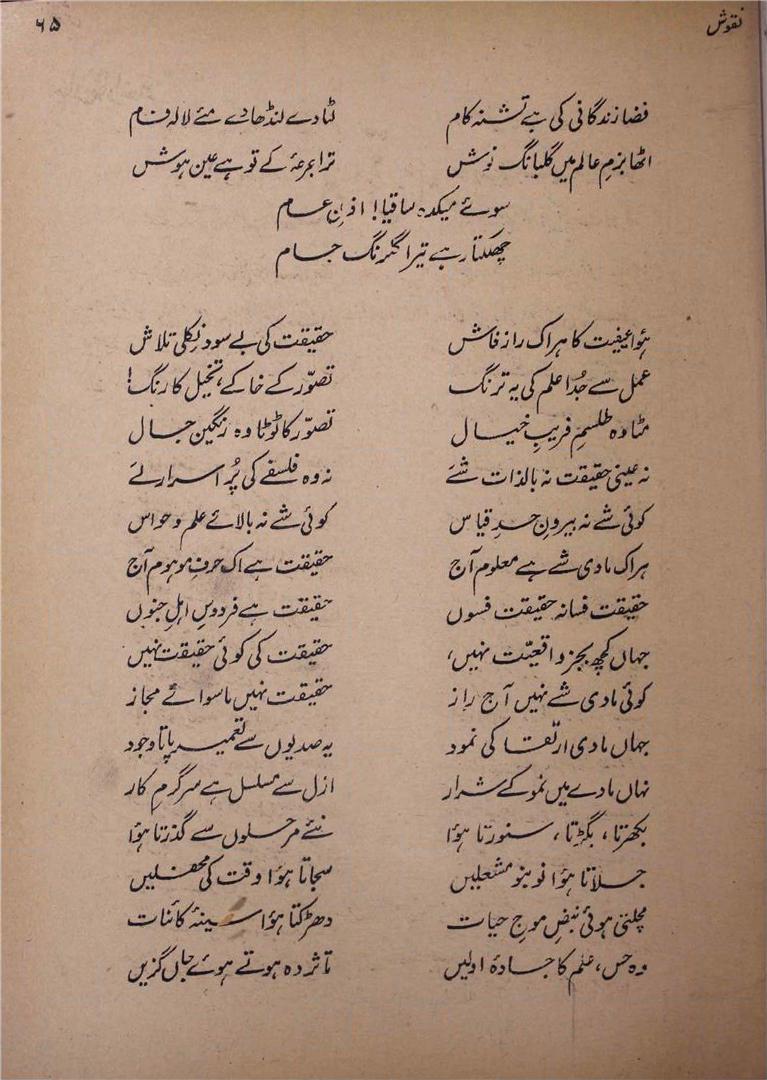 نقوش ۶۵
فضا زندگانی کی ہے تشنہ کام لٹا دے لنڈھا دے مئے لالہ فام
اٹھا بزمِ عالم میں گلبانگ نوش ترا جرعۂ کے تو ہے عین ہوش
سوئے میکدہ ساقیا! اذنِ عام
چھلکتا رہے تیرا گلرنگ جام
ہؤا عینیت کا ہر اک راز فاش حقیقت کی بے سود نکلی تلاش
عمل سے جُدا علم کی یہ ترنگ تصوّر کے خاکے، تخیل کا رنگ!
مٹا وہ طلسمِ فریبِ خیال تصوّر کا ٹوٹا وہ رنگین جال
نہ عینی حقیقت نہ بالذات شے نہ وہ فلسفے کی پُر اسرار لَے
کوئی شے نہ بیرونِ حدِ قیاس کوئی شے نہ بالائے علم و حواس
ہر اک مادی شے ہے معلوم آج حقیقت ہے اک حرفِ موہوم آج
حقیقت فسانہ حقیقت فسوں حقیقت ہے فردوسِ اہلِ جنوں
جہاں کچھ بجز واقعیّت نہیں، حقیقت کی کوئی حقیقت نہیں
کوئی مادی شے نہیں آج راز حقیقت نہیں ماسوائے مجاز
جہاں مادی ارتقا کی نمود یہ صدیوں سے تعمیر پاتا وجود
نہاں مادے میں نمو کے شرار ازل سے مسلسل ہے سرگرمِ کار
بکھرتا، بگڑتا، سنورتا ہؤا نئے مرحلوں سے گذرتا ہؤا
جلاتا ہؤا نو بنو مشعلیں سجاتا ہؤا وقت کی محفلیں
مچلتی ہوئی نبضِ موجِ حیات دھڑکتا ہؤا سینۂ کائنات
وہ حس، علم کا جادۂ اولیں تاثر وہ ہوتے ہوئے جاں گزیں